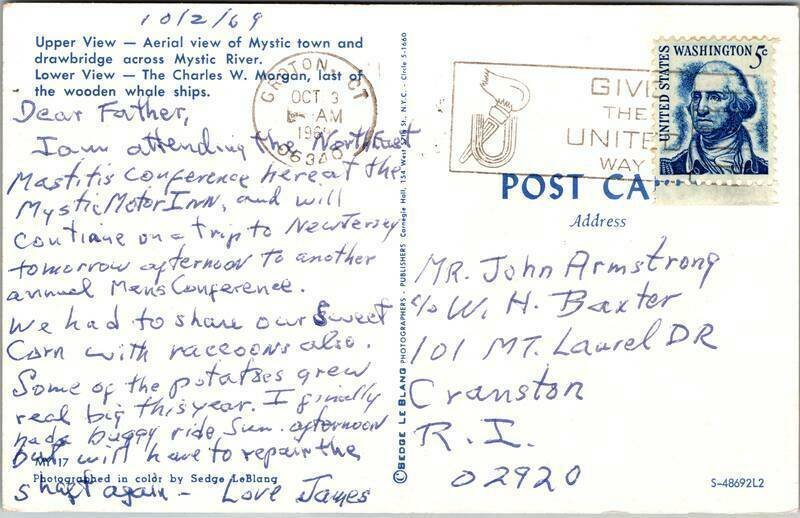 10/2/69
Upper View — Aerial view of Mystic town and
drawbridge across Mystic River.
Lower View — The Charles W. Morgan, last of
the wooden whale ships.
Dear Father,
I am attending the NorthEast
Mastitis Conference here at the
Mystic Motor Inn, and will
continue on a trip to New Jersey
tomorrow afternoon to another
annual Mens Conference.
We had to share our Sweet
Corn with raccoons also.
Some of the potatoes grew
real big this year. I finally
had a buggy ride Sun. afternoon
but will have to repair the
MY-17
Photographed in color by Sedge LeBlang
shaft again – Love James
GROTON, CT
OCT 3
AM
06340
©SEDGE LE BLANG PHOTOGRAPHERS - PUBLISHERS Carnegie Hall, 154 West 57th St. N.Y.C. - Circle 5-1660
GIVE
THE
UNITED
WAY
UNITED STATES
WASHINGTON 5¢
POST CA
Address
MR. John Armstrong
c/o W. H. Baxter
101 MT. Laurel DR
Cranston
R. I.
02920
S-48692L2